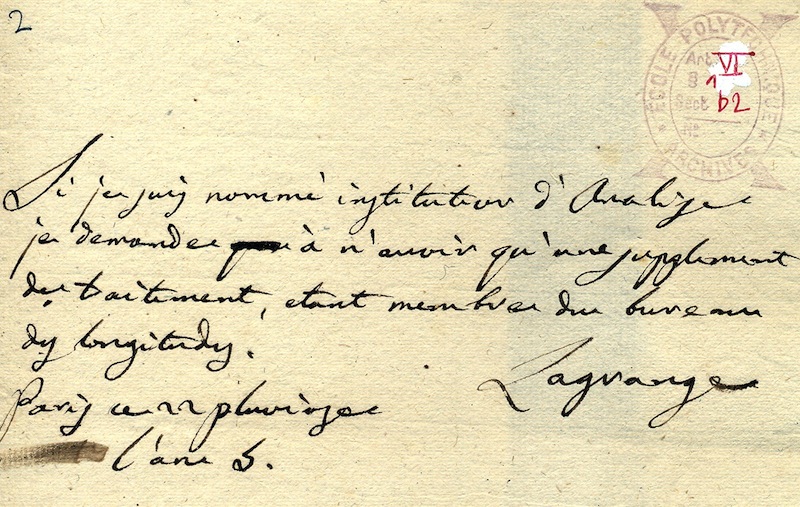 2
ÉCOLE POLYTECHNIQUE
Art. VI
8 1
Sect b2
No
* ARCHIVES *
Si je suis nommé instituteur d'Analise
je demande à n'avoir qu'une supplement
de traitement, etant membre du bureau
des longitudes.
Lagrange
Paris ce 22 pluviose
l'an 3.